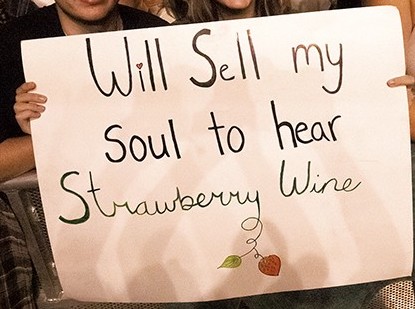 Will Sell my
Soul to hear
Strawberry Wine